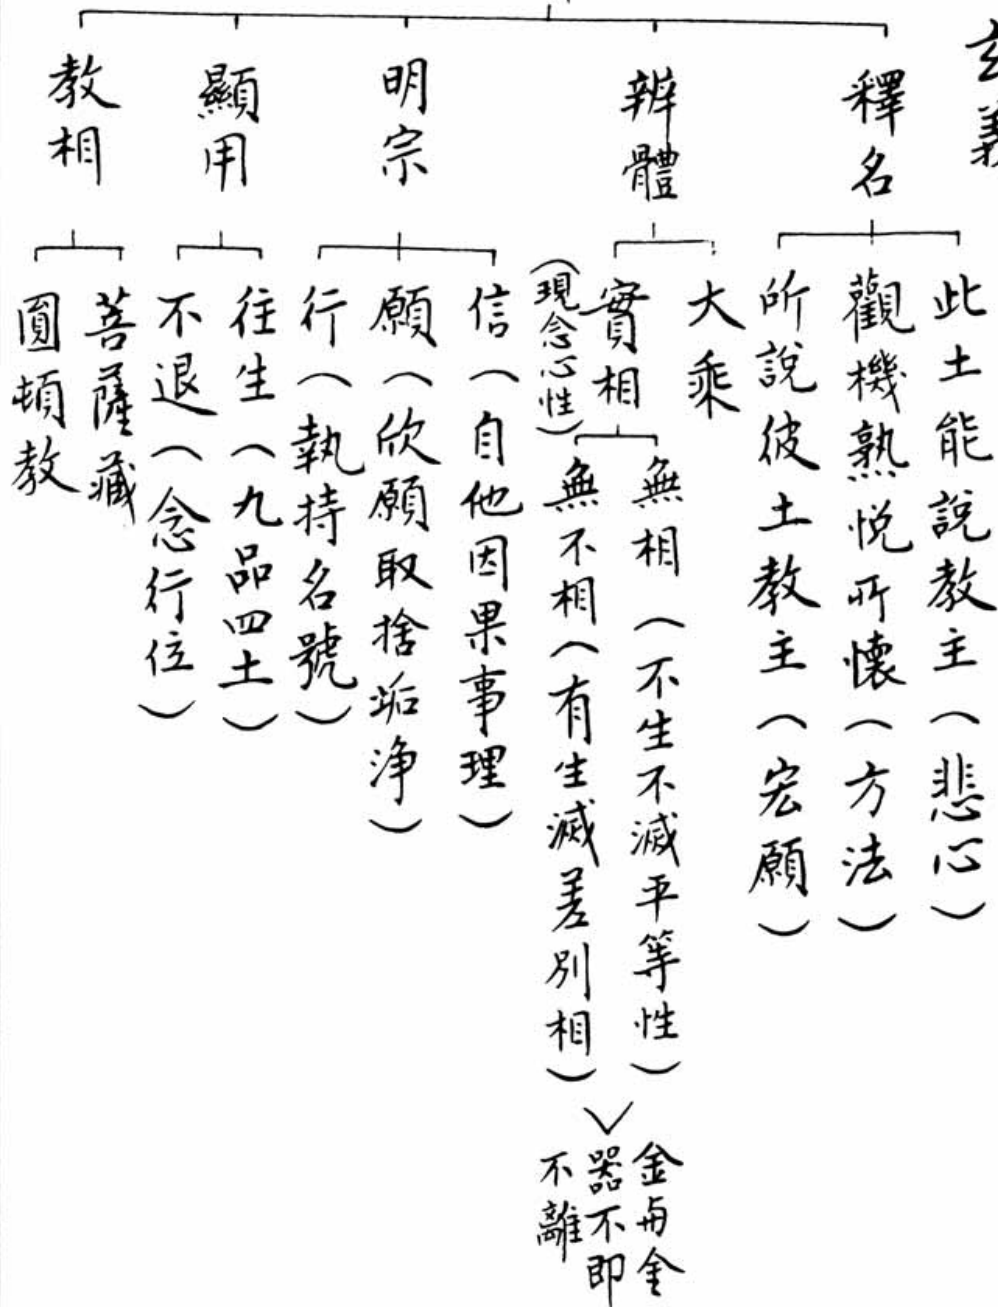 玄義
釋名
此土能說教主（悲心）
觀機熟悅所懷（方法）
所說彼土教主（宏願）
辨體
大乘
實相
（現念心性）
無相（不生不滅平等性）
無不相（有生滅差別相）
金与金
器不即
不離
明宗
信（自他因果事理）
願（欣願取捨垢净）
行（執持名號）
顯用
往生（九品四土）
不退（念行位）
教相
菩薩藏
圓頓教